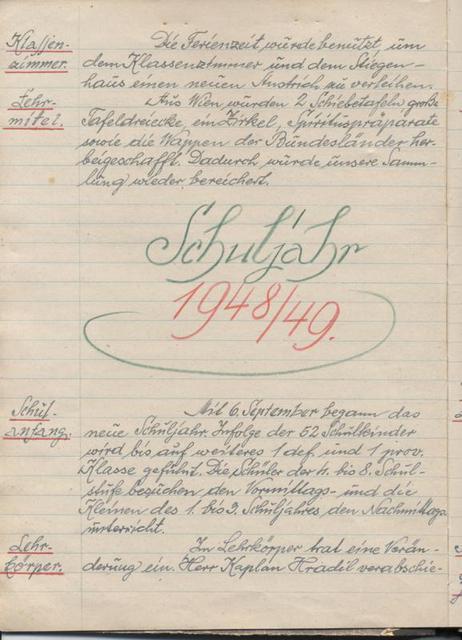 Klassen-
zimmer.
Die Ferienzeit wurde benützt, um
dem Klassenzimmer und dem Stiegen-
haus einen neuen Anstrich zu verleihen.
Lehr-
mittel.
Aus Wien wurden 2 Schiebetafeln, große
Tafeldreiecke, ein Zirkel, Spirituspräparate
sowie die Wappen der Bundesländer her-
beigeschafft. Dadurch wurde unsere Samm-
lung wieder bereichert.
Schuljahr
1948/49.
Schul-
anfang.
Mit 6. September begann das
neue Schuljahr. Infolge der 52 Schulkinder
wird bis auf weiteres 1 def. und 1 prov.
Klasse geführt. Die Schüler der 4. bis 8. Schul-
stufe besuchen den Vormittags- und die
Kleinen des 1. bis 3. Schuljahres den Nachmittags-
unterricht.
Lehr-
körper.
Im Lehrkörper trat eine Verän-
derung ein. Herr Kaplan Hradil verabschie-